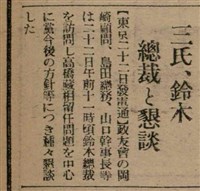 三氏、鈴木
總裁と懇談
【東京二十二日發電通】政友會の岡
崎顧問、島田總務、山口幹事長等
は二十二日午前十一時頃鈴木總裁
を訪問し高橋藏相留任問題を中心
に黨今後の方針等につき種々懇談
した